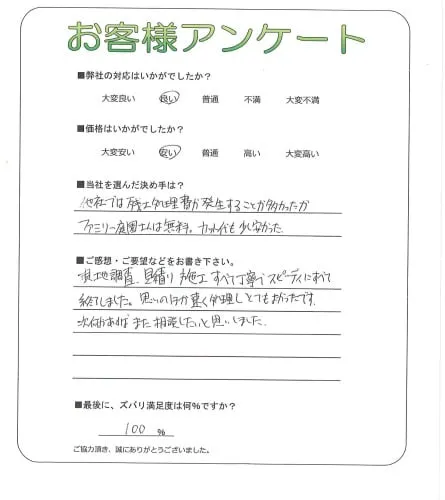 お客様アンケート
■弊社の対応はいかがでしたか？
大変良い 良い 普通 不満 大変不満
■価格はいかがでしたか？
大変安い 安い 普通 高い 大変高い
■当社を選んだ決め手は？
他社では残土処理費が発生することが多かったが
ファミリー庭園さんは無料。カット代も少し安かった
■ご感想・ご要望などをお書き下さい。
現地調査、見積り、施工 すべて丁寧でスピーディにすべて
終了しました。思いのほか早く処理し とてもよかったです。
次何かあれば また 相談したいと思いました。
■最後に、ズバリ満足度は何％ですか？
100 ％
ご協力頂き、誠にありがとうございました。